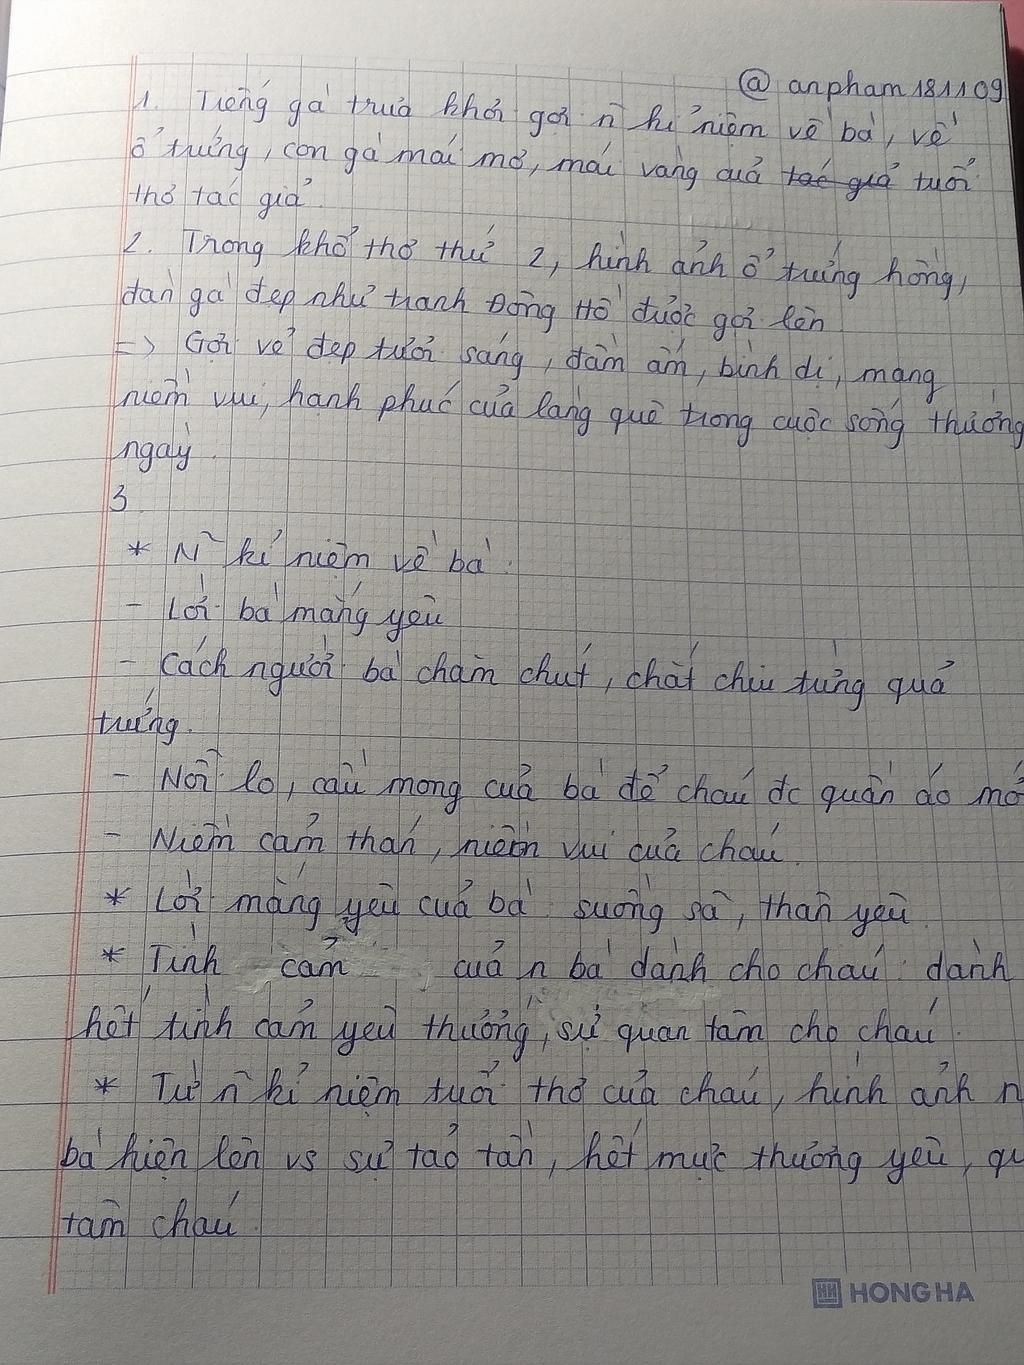 @ anpham181109
1. Tiếng gà trưa khơi gợi n~ kỉ niệm về bà, về
ổ trứng, con gà mái mơ, mái vàng của tác giả tuổi
thơ tác giả.
2. Trong khổ thơ thứ 2, hình ảnh ổ trứng hồng,
đàn gà đẹp như tranh Đông Hồ được gợi lên
=> Gợi vẻ đẹp tươi sáng, đầm ấm, bình dị, mang
niềm vui, hạnh phúc của làng quê trong cuộc sống thường
ngày.
3.
* N~ kỉ niệm về bà:
- Lời bà mắng yêu
- Cách người bà chăm chút, chắt chiu từng quả
trứng.
- Nỗi lo, cầu mong của bà để cháu đc quần áo mớ
- Niềm cảm thán, niềm vui của cháu.
* Lời mắng yêu của bà: suồng sã, thân yêu
* Tình cảm của n bà dành cho cháu: dành
hết tình cảm yêu thương, sự quan tâm cho cháu.
* Từ n~ kỉ niệm tuổi thơ của cháu, hình ảnh n
bà hiện lên vs sự tảo tần, hết mực thương yêu, qu
tâm cháu.
HONG HA